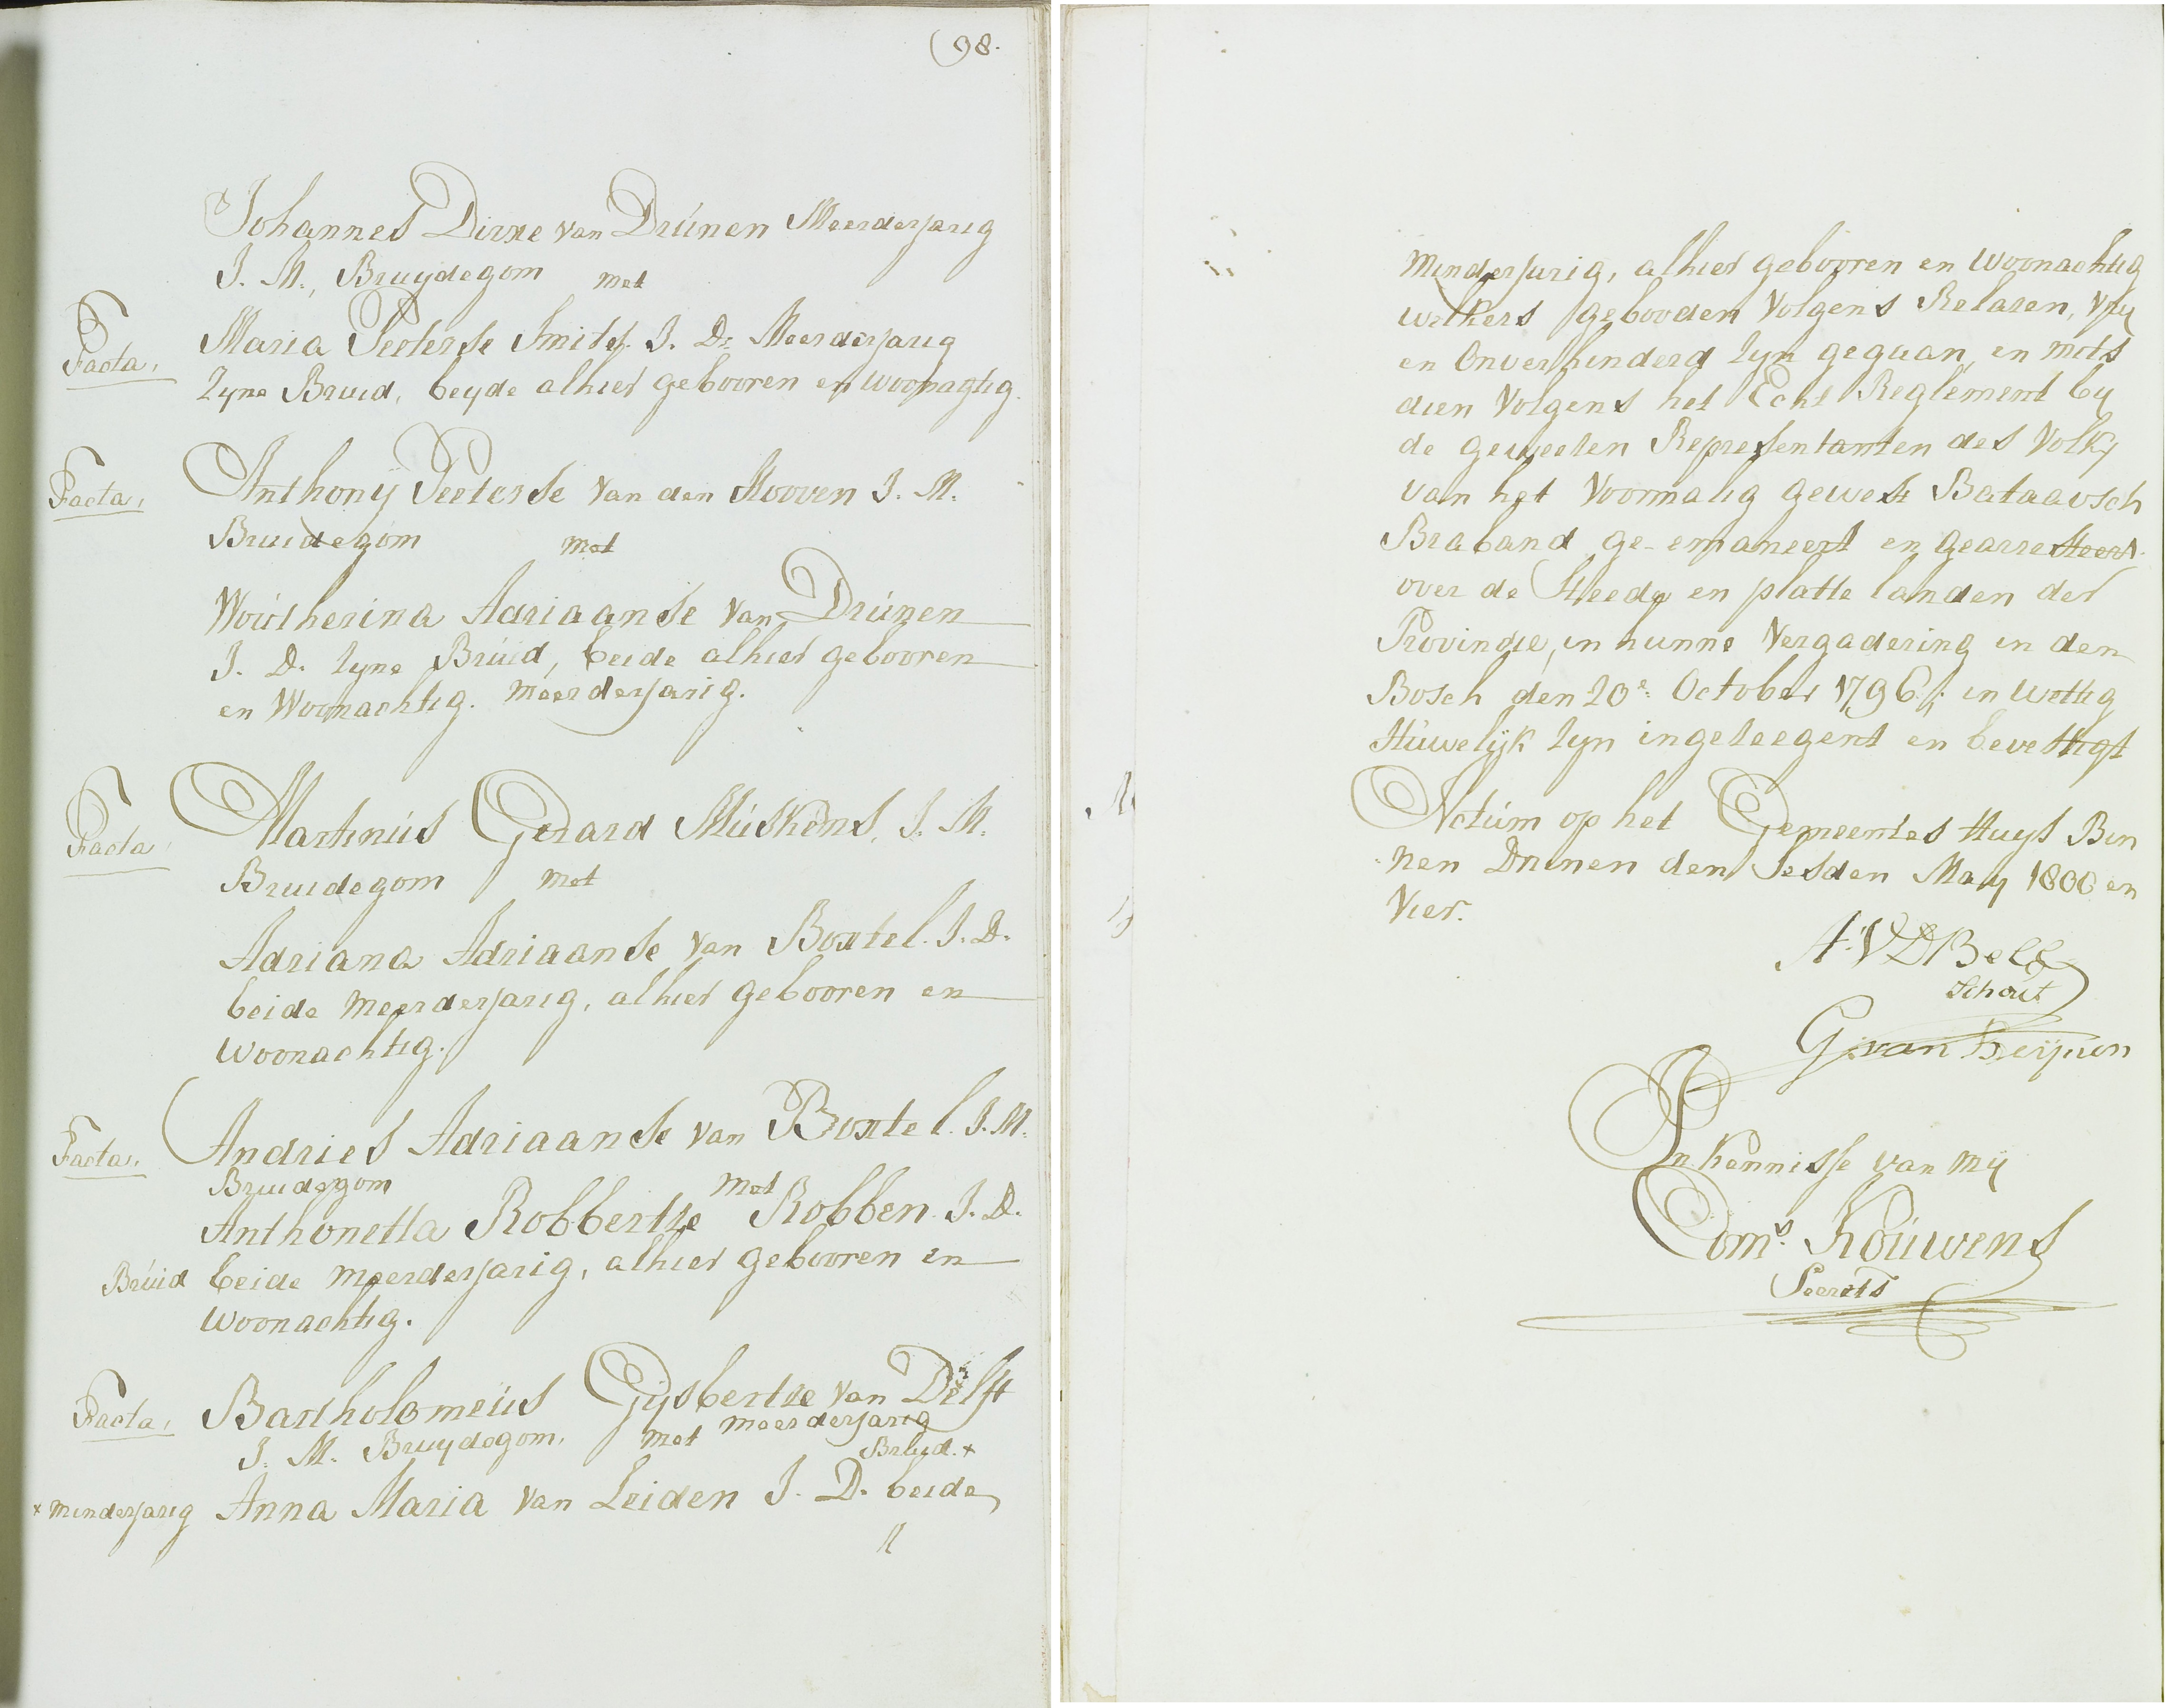 (98.
Johannes Dirxe van Drúnen Meerderjarig
J. M., Bruijdegom met
Facta,
Maria Peeterse Smits J. D. Meerderjarig
Zyne Bruid, beyde alhier gebooren en woonagtig.
Facta,
Anthonij Peeterse van den Hooven J. M.
Bruidegom met
Woútherina Adriaanse van Drúnen
J. D. Zyne Brúid, beide alhier gebooren
en Woonachtig. meerderjarig.
Facta,
Martinús Gerard Múskens, J. M.
Bruidegom met
Adriana Adriaanse van Boxtel. J. D.
beide meerderjarig, alhier gebooren en
woonachtig.
Facta,
Andries Adriaanse van Boxtel. J. M.
Bruidegom met
Anthonetta Robbertse Robben J. D.
Brúid beide meerderjarig, alhier gebooren en
woonachtig.
Facta, Bartholomeús Gijsbertse van Delft
J. M. Bruydegom, met meerderjarig
Bruyd. +
+ minderjarig Anna Maria van Leiden J. D. beide
minderjarig, alhier gebooren en woonachtig
welkers gebooden volgens Relaxen, vry
en Onverhinderd Zyn gegaan, en mits
dien volgens het Echt Reglement by
de geweesen Representanten des Volks
van het voormalig gewest Bataavsch
Braband ge-emaneert en gearresteert
over de Steeden platte landen der
Provincie, in hunne Vergadering in den
Bosch den 20e. October 1796, in wettig
Húwelijk Zyn ingezeegent en bevestigt
Actúm op het Gemeentes Huys Bin
nen Drunen den Sesden May 1800 en
Vier.
A. V D Bell
Schout
G. van
In kennisse van mij
Corns. Koúwens
Secrets